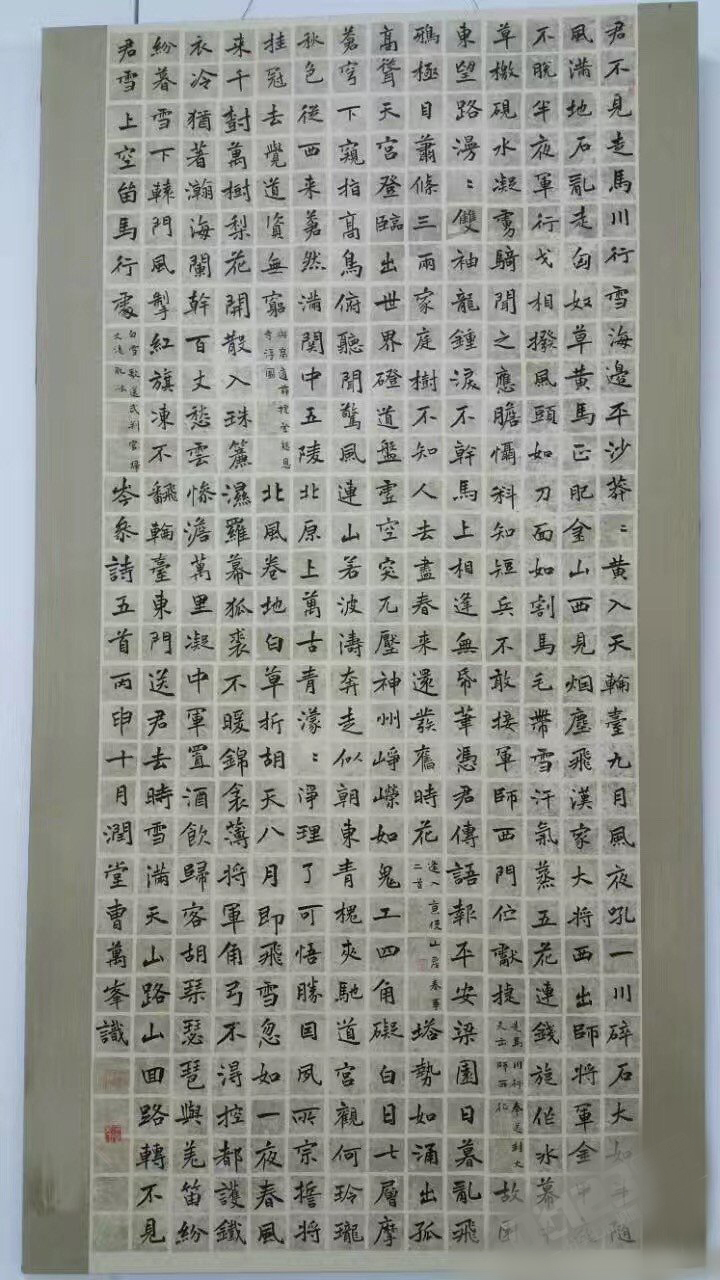 君不見走馬川行雪海邊平沙莽〻黃入天輪臺九月風夜吼一川碎石大如斗隨
風滿地石亂走匈如草黃馬正肥金山西見烟塵飛漢家大將西出師將軍金甲
不脫半夜軍行戈相撥風頭如刀面如割馬毛帶雪汗氣蒸五花連錢旋作冰幕
草檄硯水凝虜騎聞之應膽懾料知短兵不敢接軍師西門佇獻捷
走馬川行奉送封大
夫出師西征
故園
東望路漫〻雙袖龍鍾淚不幹馬上相逢無帋筆憑君傳語報平安梁園日暮亂飛
鴉極目蕭條三兩家庭樹不知人去盡春來還發舊時花
逢入京使山房春事
二首
塔勢如涌出孤
高聳天宮登臨出世界磴道盤虛空突兀壓神州崢嶸如鬼工四角礙白日七層摩
蒼穹下窺指高鳥俯聽聞驚風連山若波濤奔走似朝東青槐夾馳道宮觀何玲瓏
秋色從西來蒼然滿關中五陵北原上萬古青濛〻淨理了可悟勝因夙所宗誓將
挂冠去覺道資無窮
與高適薛據登慈恩
寺浮圖
北風卷地白草折胡天八月即飛雪忽如一夜春風
来千樹萬樹梨花開散入珠簾濕羅幕狐裘不暖錦衾薄將軍角弓不得控都護鐵
衣冷猶著瀚海闌幹百丈愁雲慘澹萬里凝中軍置酒飲歸客胡琴琵琶與羌笛紛
紛暮雪下轅門風掣紅旗凍不飜輪臺東門送君去時雪滿天山路山回路轉不見
君雪上空留馬行處
白雪歌送武判官歸
岑參詩五首丙申十月潤堂曹萬峯識